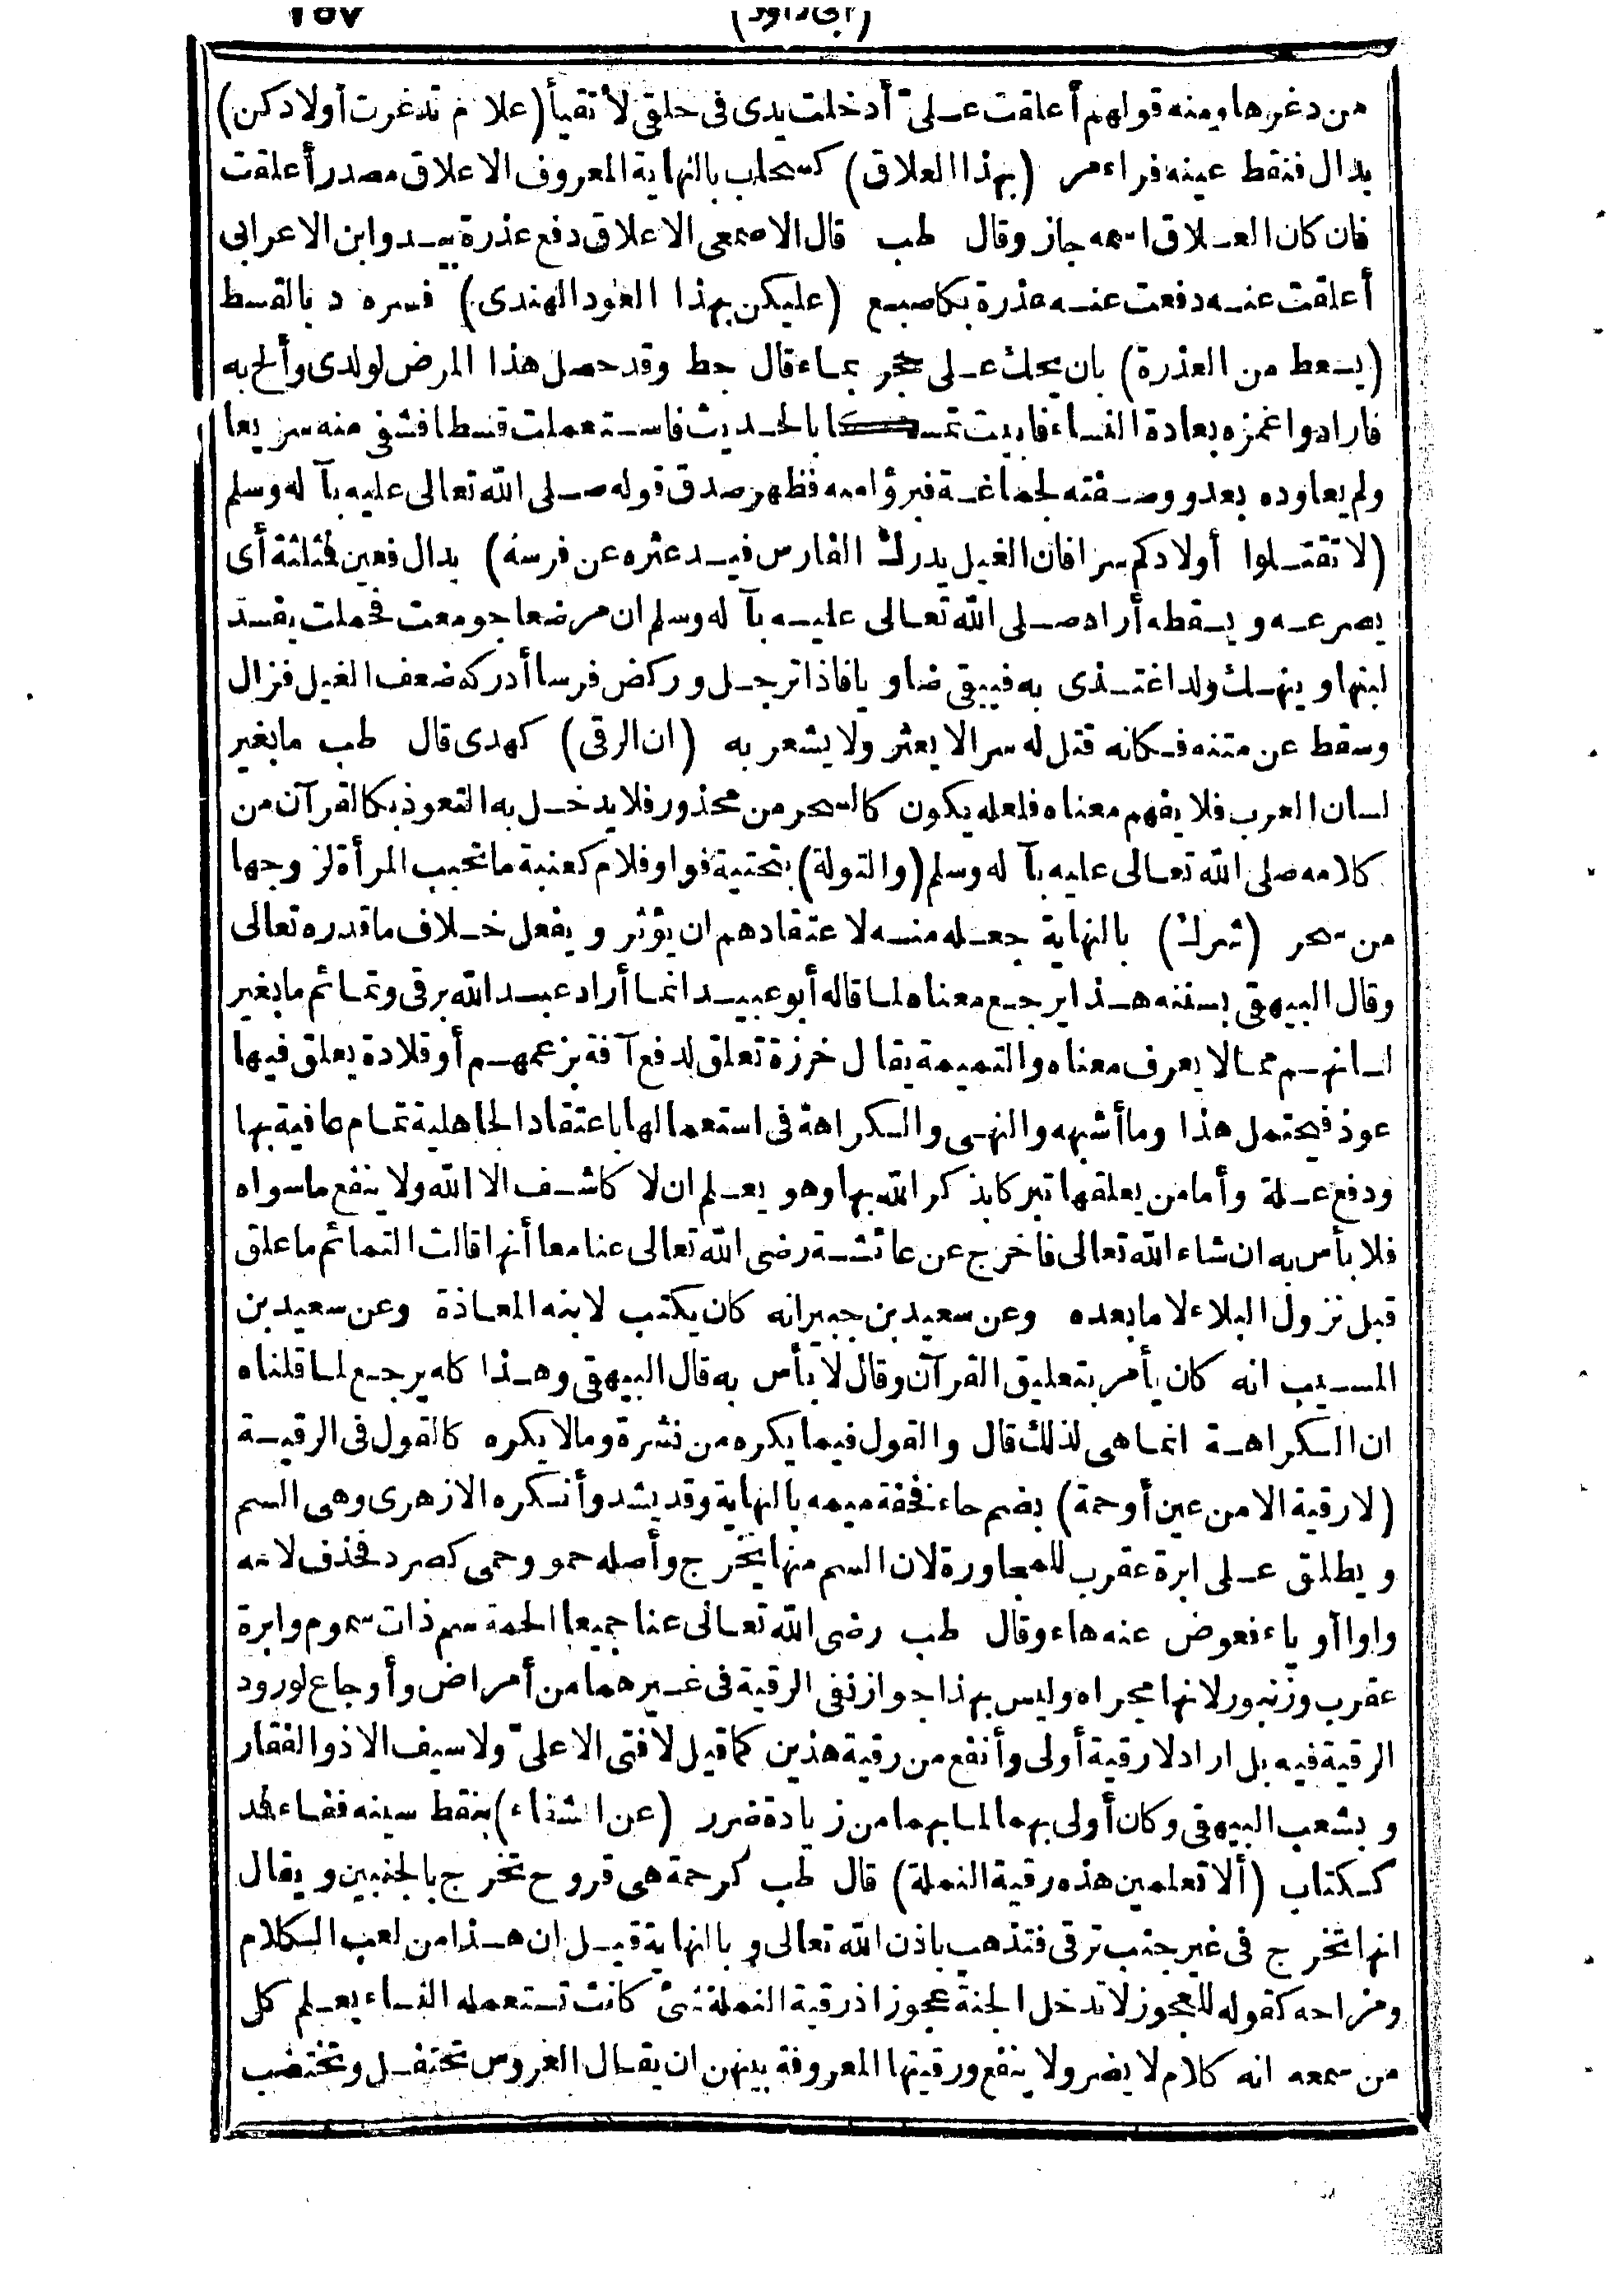 (ابى داود) ١٥٧
من دغرها ومنه قولهم أعلقت عـلىّ أدخلت يدى فى حلقى لأتقيأ (علام تدغرت أولادكن)
بدال فنقط عينه فراء مر (بهذا العلاق) كسحاب بالنهاية المعروف الاعلاق مصدر أعلقت
فان كان العـلاق اسمه جاز وقال طب قال الاصمعى الاعلاق دفع عذرة بيـد وابن الاعرابى
أعلقت عنـه دفعت عنـه عذرة بكاصبـع (عليكن بهذا العود الهندى) فسره د بالقسط
(يسعط من العذرة) بان يحك عـلى حجر بمـاء قال جط وقد حصل هذا المرض لولدى وألح به
فارادوا غمزه بعادة النساء فابيت تمسكا بالحـديث فاسـتعملت قسطا فشفى منه سريعا
ولم يعاوده بعد ووصـفته لجماعـة فبرؤا منه فظهر صدق قوله صـلى الله تعالى عليه بآ له وسلم
(لا تقتـلوا أولادكم سرا فان الغيل يدرك الفارس فيـدعثره عن فرسه) بدال فعين فمثلثة أى
يصرعـه ويسقطه أراد صـلى الله تعـالى عليـه بآ له وسلم ان مرضعا جومعت فحملت يفسد
لبنها وينهـك ولدا اغتـذى به فيبقى ضاويا فاذا ترجـل وركض فرسا أدركه ضعف الغيل فزال
وسقط عن متنه فـكانه قتل له سرا لا يعثر ولا يشعر به (ان الرقى) كهدى قال طب ما بغير
لسان العرب فلا يفهم معناه فلعله يكون كالسحر من محذور فلا يدخـل به التعوذ بكالقرآن من
كلامه صلى الله تعـالى عليه بآ له وسلم (والتولة) بتحتية فواو فلام كعنبة ما تحبب المرأة لزوجها
من سحر (شرك) بالنهاية جعـله منـه لاعتقادهم ان يؤثر ويفعل خـلاف ما قدره تعالى
وقال البيهقى بسننه هـذا يرجـع معناه لمـا قاله أبو عبيـد انمـا أراد عبـد الله برقى وتمـائم ما بغير
لسـانهـم ممـا لا يعرف معناه والتميمة يقال خرزة تعلق لدفع آفة بزعمهـم أو قلادة يعلق فيها
عوذ فيحتمل هذا وما أشبهه والنهـى والـكراهة فى استعمالها باعتقاد الجاهلية تمـام عافية بها
ودفع عـلة وأما من يعلقها تبركا بذكر الله بها وهو يعـلم ان لا كاشـف الا الله ولا ينفع ما سواه
فلا بأس به ان شاء الله تعالى فاخرج عن عائشـة رضى الله تعالى عنا معا أنها قالت التمائم ما علق
قبل نزول البلاء لا ما بعده وعن سعيد بن جبير انه كان يكتب لابنه المعـاذة وعن سعيد بن
المسـيب انه كان يأمر بتعليق القرآن وقال لا بأس به قال البيهقى وهـذا كله يرجـع لمـا قلناه
ان الـكراهـة انمـا هى لذلك قال والقول فيما يكره من نشرة وما لا يكره كالقول فى الرقيـة
(لا رقية الا من عين أو حمة) بضم حاء فخفة ميمه بالنهاية وقد يشد وأنـكره الازهرى وهى السم
ويطلق عـلى ابرة عقرب للمجاورة لان السم منها يخرج وأصله حمو وحمى كصرد فحذف لامه
واوا أو ياء فعوض عنه هاء وقال طب رضى الله تعـالى عنا جميعا الحمة سم ذات سموم وابرة
عقرب وزنبور لانها مجراه وليس بهذا جواز نفى الرقية فى غـيرهما من أمراض وأوجاع لورود
الرقية فيه بل اراد لا رقية أولى وأنفع من رقية هذين كما قيل لا فتى الا علىّ ولا سيف الا ذو الفقار
وبشعب البيهقى وكان أولى بهما لمـا بهما من زيادة ضرر (عن الشفاء) بنقط سينه ففـاء فمد
كـكتاب (ألا تعلمين هذه رقية النملة) قال طب كرحمة هى قروح تخرج بالجنبين ويقال
انها تخرج فى غير جنب ترقى فتذهب باذن الله تعالى وبالنهاية قيـل ان هـذا من لعب الـكلام
ومزاحه كقوله للعجوز لا تدخل الجنة عجوز اذ رقية النملة شئ كانت تسـتعمله النساء يعـلم كل
من سمعه انه كلام لا يضر ولا ينفع ورقيتها المعروفة بينهن ان يقـال العروس تحتفـل وتختضب